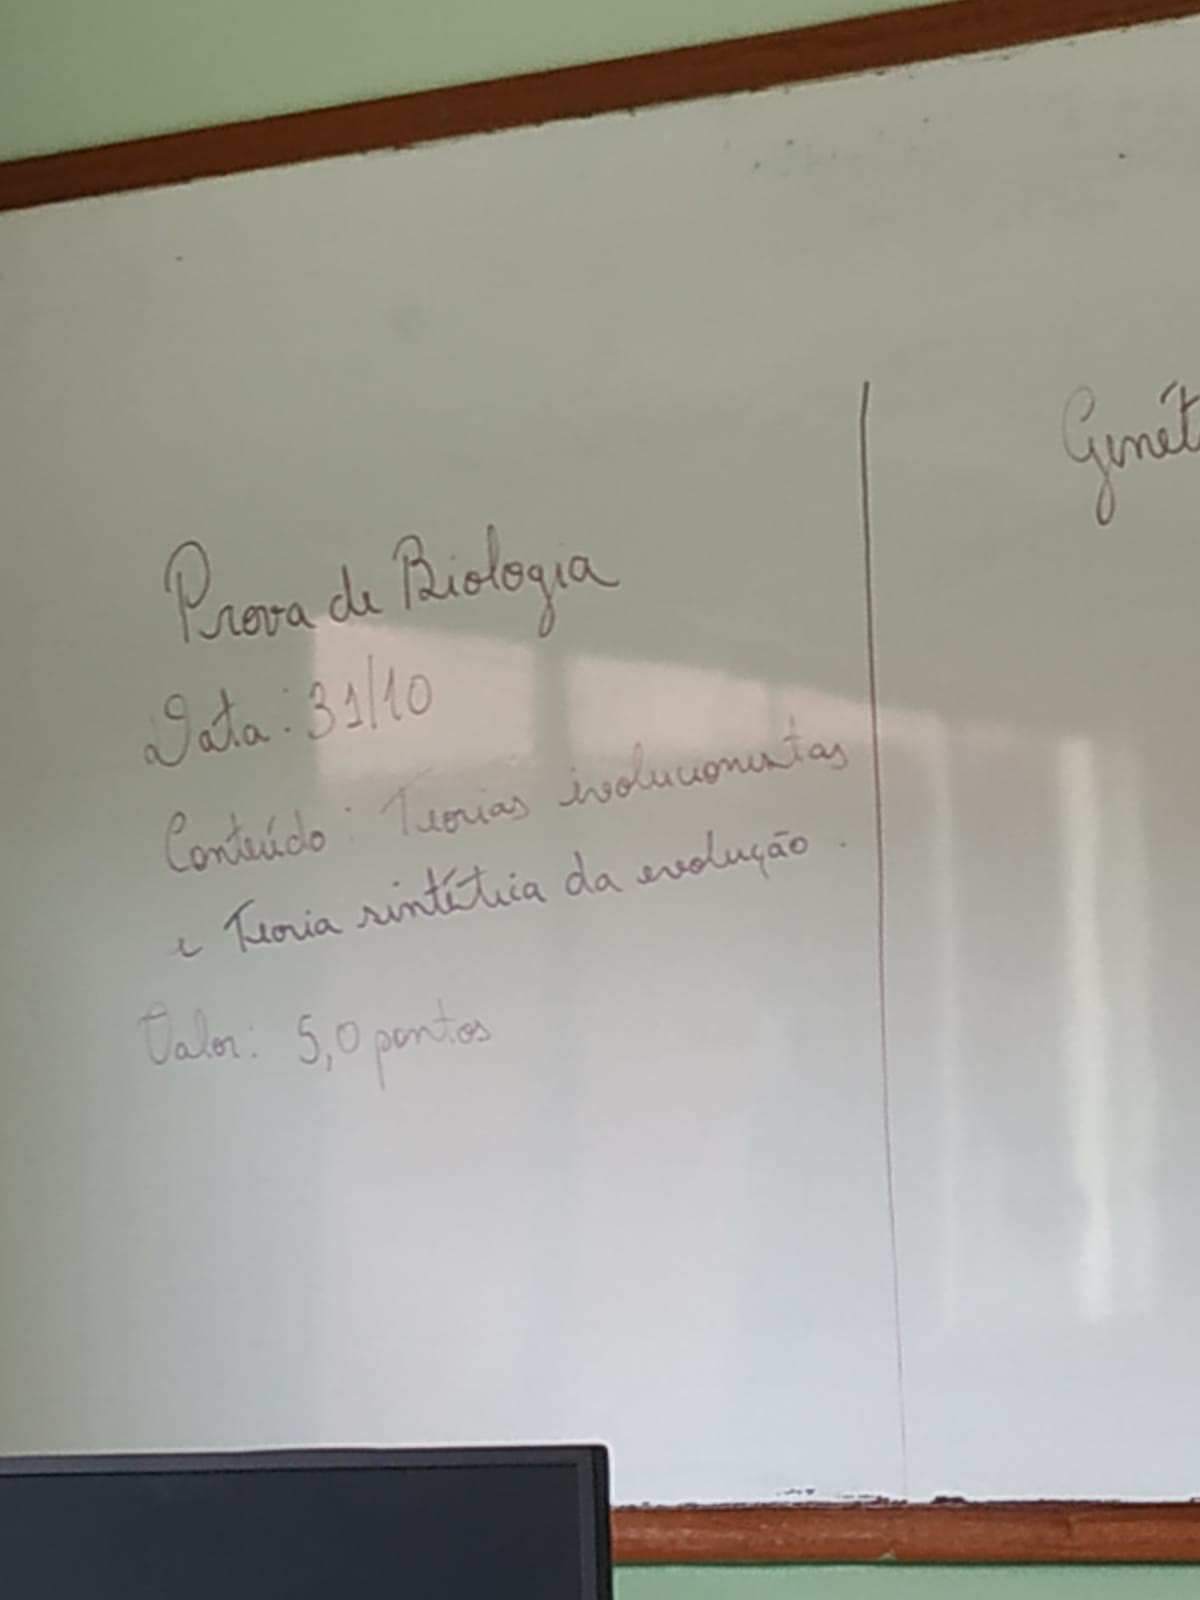 Prova de Biologia
Data: 31/10
Conteúdo: Teorias evolucionistas
e Teoria sintética da evolução.
Valor: 5,0 pontos
Genét